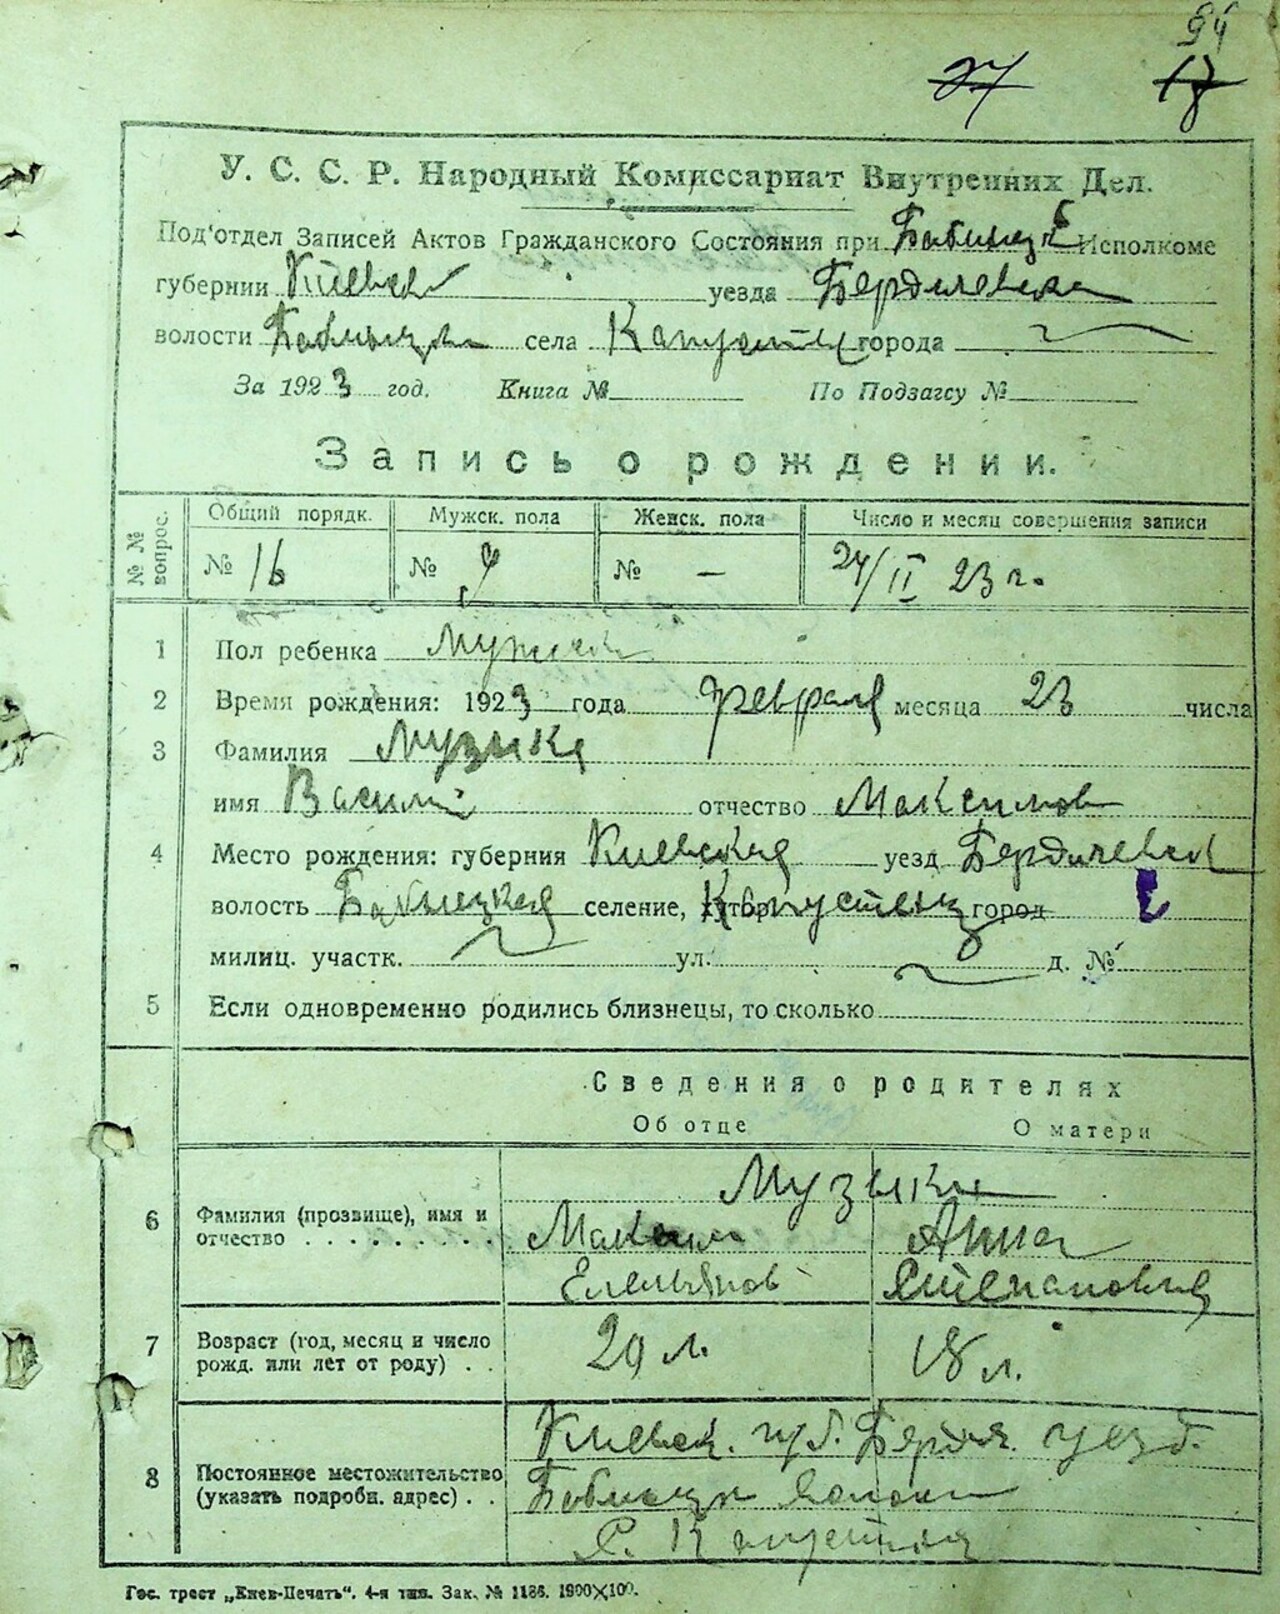 94
27 17
У. С. С. Р. Народный Комиссариат Внутренних Дел.
Под'отдел Записей Актов Гражданского Состояния при Исполкоме
губернии Киевск уезда Бердичевска
волости села города
За 1923 год. Книга № По Подзагсу №
Запись о рождении.
№ № вопрос. Общий порядк. Мужск. пола Женск. пола Число и месяц совершения записи
№ 16 № 9 № — 24/II 23 г.
1 Пол ребенка Мужск
2 Время рождения: 1923 года февраля месяца 23 числа
3 Фамилия Музыка
имя Василий отчество Максимов
4 Место рождения: губерния Киевская уезд Бердичевск
волость Бабыцкая селение, хутор город
милиц. участк. ул. д. №
5 Если одновременно родились близнецы, то сколько
Сведения о родителях
Об отце О матери
Музыки
6 Фамилия (прозвище), имя и отчество . . . . . . . . . Максим Анна
Емельянов Степановна
7 Возраст (год, месяц и число рожд. или лет от роду) . . 29 л. 18 л.
Киевск. губ. Бердич. уезд.
8 Постоянное местожительство (указать подробн. адрес) . . волости
с.
Гос. трест „Киев-Печать“. 4-я тип. Зак. № 1186. 1900×100.